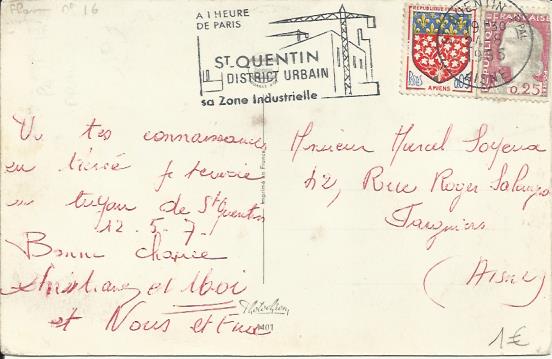 Flam n° 16
A 1 HEURE
DE PARIS
ST QUENTIN
DISTRICT URBAIN
sa Zone Industrielle
REPUBLIQUE FRANÇAISE
AMIENS
POSTES
0,05
FRANÇAISE
0,25
QUENTIN
AISNE
Vu tes connaissances
en tiercé je t'envoie
un tuyau de St Quentin
12. 5. 7.
Bonne chance
Christiane et Moi
et Nous et
Imprimé en France
Photochrom
Monsieur Marcel
42, Rue Roger Salengro
Tergniers
(Aisne)
1€